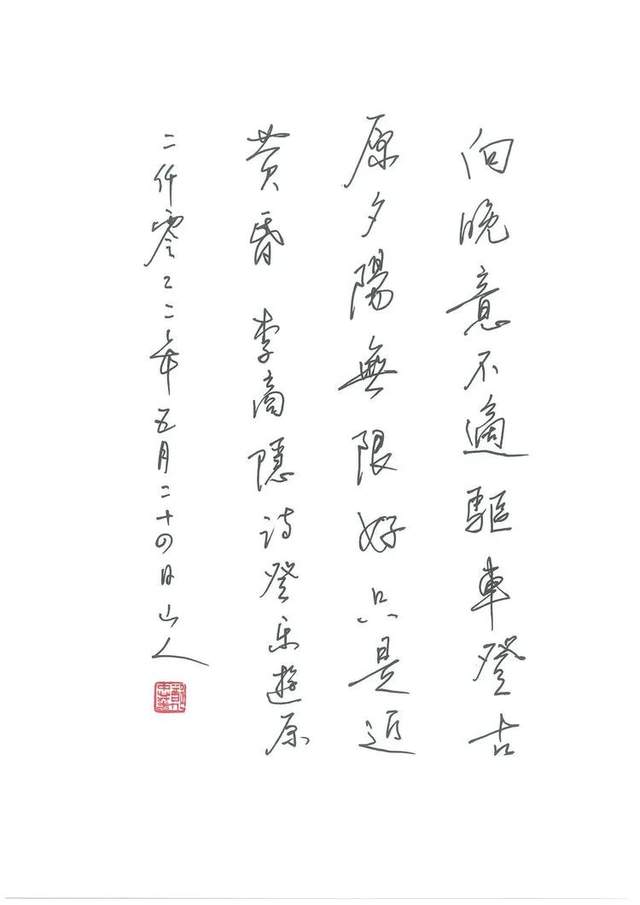 向晚意不適驅車登古
原夕陽無限好只是近
黄昏 李商隱詩登樂遊原
二仟零二二年五月二十四日山人